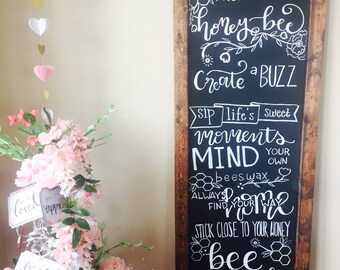 honey bee
Create a BUZZ
sip life's sweet
moments
MIND YOUR
OWN
beeswax
ALWAYS
FIND YOUR WAY
home
STICK CLOSE TO YOUR HONEY
bee
loved